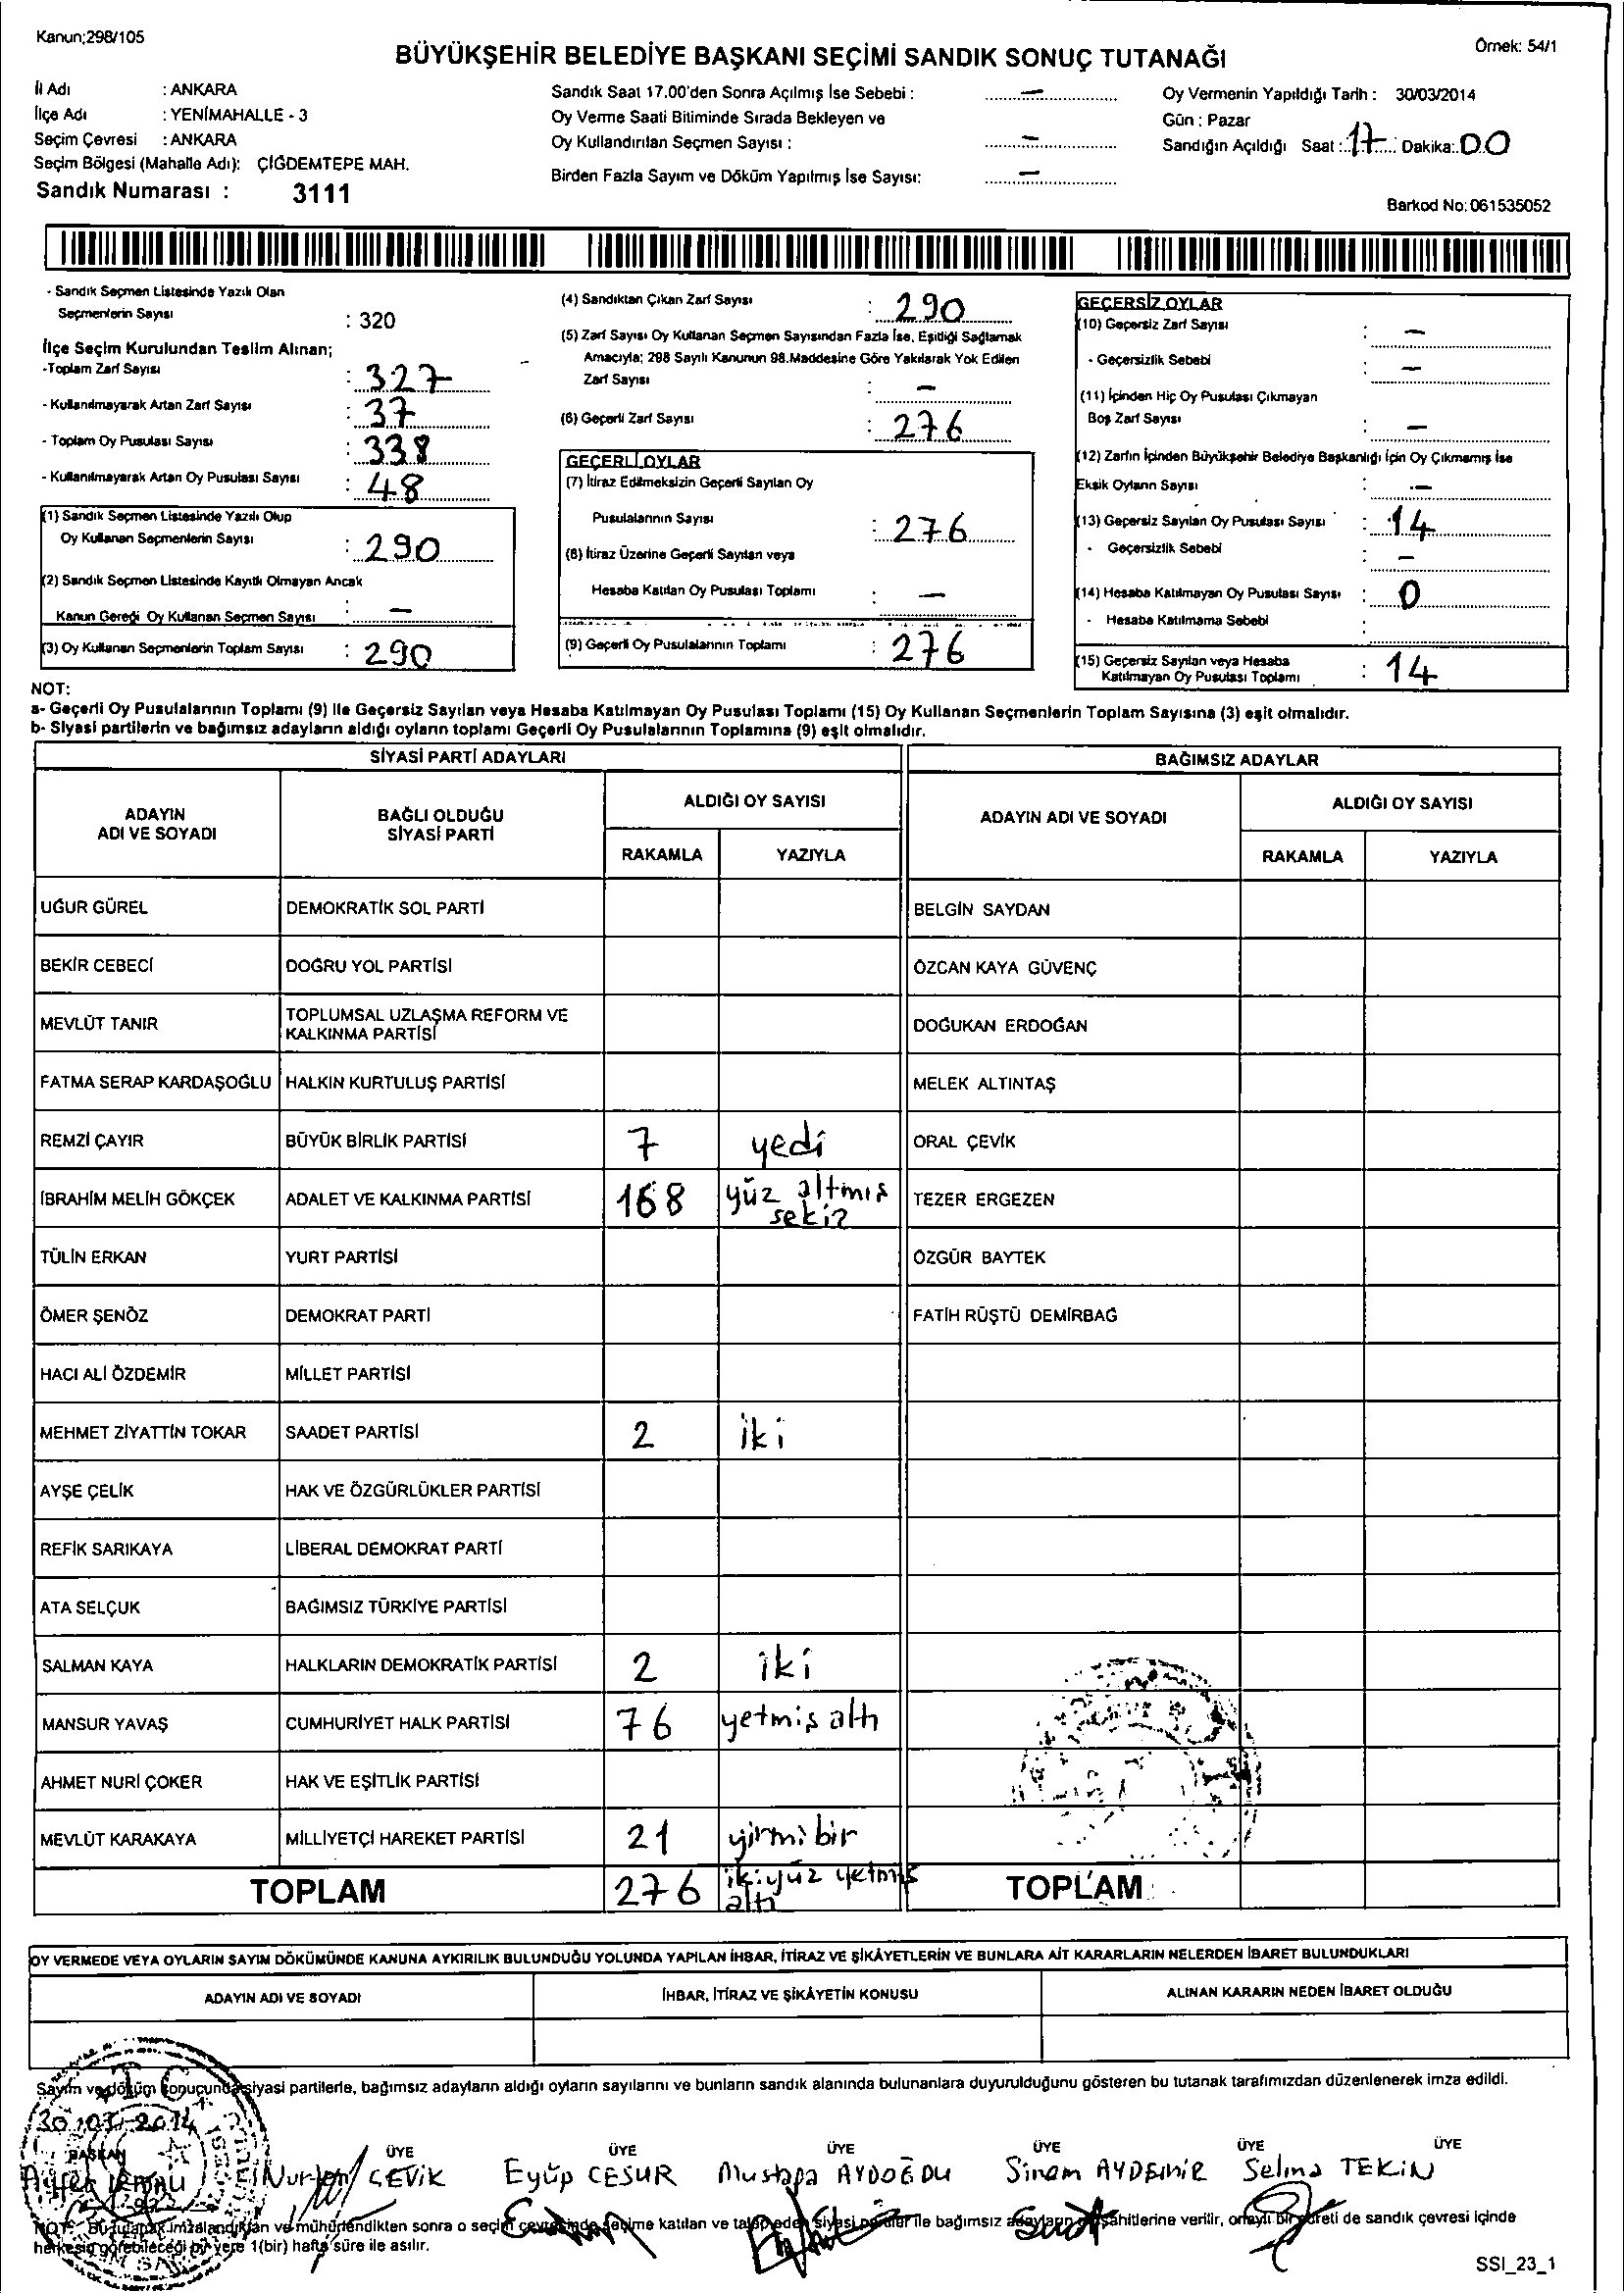 Kanun;298/105
Örnek: 54/1
BÜYÜKŞEHİR BELEDİYE BAŞKANI SEÇİMİ SANDIK SONUÇ TUTANAĞI
İl Adı : ANKARA
İlçe Adı : YENİMAHALLE - 3
Seçim Çevresi : ANKARA
Seçim Bölgesi (Mahalle Adı): ÇİĞDEMTEPE MAH.
Sandık Numarası : 3111
Sandık Saat 17.00'den Sonra Açılmış İse Sebebi : —
Oy Verme Saati Bitiminde Sırada Bekleyen ve
Oy Kullandırılan Seçmen Sayısı : —
Birden Fazla Sayım ve Döküm Yapılmış İse Sayısı: —
Oy Vermenin Yapıldığı Tarih : 30/03/2014
Gün : Pazar
Sandığın Açıldığı Saat : 17 Dakika: 00
Barkod No: 061535052
- Sandık Seçmen Listesinde Yazılı Olan
Seçmenlerin Sayısı : 320
İlçe Seçim Kurulundan Teslim Alınan;
-Toplam Zarf Sayısı : 327
- Kullanılmayarak Artan Zarf Sayısı : 37
- Toplam Oy Pusulası Sayısı : 338
- Kullanılmayarak Artan Oy Pusulası Sayısı : 48
(1) Sandık Seçmen Listesinde Yazılı Olup
Oy Kullanan Seçmenlerin Sayısı : 290
(2) Sandık Seçmen Listesinde Kayıtlı Olmayan Ancak
Kanun Gereği Oy Kullanan Seçmen Sayısı : —
(3) Oy Kullanan Seçmenlerin Toplam Sayısı : 290
(4) Sandıktan Çıkan Zarf Sayısı : 290
(5) Zarf Sayısı Oy Kullanan Seçmen Sayısından Fazla İse, Eşitliği Sağlamak
Amacıyla; 298 Sayılı Kanunun 98.Maddesine Göre Yakılarak Yok Edilen
Zarf Sayısı : —
(6) Geçerli Zarf Sayısı : 276
GEÇERLİ OYLAR
(7) İtiraz Edilmeksizin Geçerli Sayılan Oy
Pusulalarının Sayısı : 276
(8) İtiraz Üzerine Geçerli Sayılan veya
Hesaba Katılan Oy Pusulası Toplamı : —
(9) Geçerli Oy Pusulalarının Toplamı : 276
GEÇERSİZ OYLAR
(10) Geçersiz Zarf Sayısı : —
- Geçersizlik Sebebi : —
(11) İçinden Hiç Oy Pusulası Çıkmayan
Boş Zarf Sayısı : —
(12) Zarfın İçinden Büyükşehir Belediye Başkanlığı İçin Oy Çıkmamış İse
Eksik Oyların Sayısı : —
(13) Geçersiz Sayılan Oy Pusulası Sayısı : 14
- Geçersizlik Sebebi : —
(14) Hesaba Katılmayan Oy Pusulası Sayısı : 0
- Hesaba Katılmama Sebebi :
(15) Geçersiz Sayılan veya Hesaba
Katılmayan Oy Pusulası Toplamı : 14
NOT:
a- Geçerli Oy Pusulalarının Toplamı (9) ile Geçersiz Sayılan veya Hesaba Katılmayan Oy Pusulası Toplamı (15) Oy Kullanan Seçmenlerin Toplam Sayısına (3) eşit olmalıdır.
b- Siyasi partilerin ve bağımsız adayların aldığı oyların toplamı Geçerli Oy Pusulalarının Toplamına (9) eşit olmalıdır.
SİYASİ PARTİ ADAYLARI
BAĞIMSIZ ADAYLAR
ADAYIN ADI VE SOYADI
BAĞLI OLDUĞU SİYASİ PARTİ
ALDIĞI OY SAYISI
RAKAMLA YAZIYLA
ADAYIN ADI VE SOYADI
ALDIĞI OY SAYISI
RAKAMLA YAZIYLA
UĞUR GÜREL DEMOKRATİK SOL PARTİ BELGİN SAYDAN
BEKİR CEBECİ DOĞRU YOL PARTİSİ ÖZCAN KAYA GÜVENÇ
MEVLÜT TANIR TOPLUMSAL UZLAŞMA REFORM VE KALKINMA PARTİSİ DOĞUKAN ERDOĞAN
FATMA SERAP KARDAŞOĞLU HALKIN KURTULUŞ PARTİSİ MELEK ALTINTAŞ
REMZİ ÇAYIR BÜYÜK BİRLİK PARTİSİ 7 yedi ORAL ÇEVİK
İBRAHİM MELİH GÖKÇEK ADALET VE KALKINMA PARTİSİ 168 yüz altmış sekiz TEZER ERGEZEN
TÜLİN ERKAN YURT PARTİSİ ÖZGÜR BAYTEK
ÖMER ŞENÖZ DEMOKRAT PARTİ FATİH RÜŞTÜ DEMİRBAĞ
HACI ALİ ÖZDEMİR MİLLET PARTİSİ
MEHMET ZİYATTİN TOKAR SAADET PARTİSİ 2 iki
AYŞE ÇELİK HAK VE ÖZGÜRLÜKLER PARTİSİ
REFİK SARIKAYA LİBERAL DEMOKRAT PARTİ
ATA SELÇUK BAĞIMSIZ TÜRKİYE PARTİSİ
SALMAN KAYA HALKLARIN DEMOKRATİK PARTİSİ 2 iki
MANSUR YAVAŞ CUMHURİYET HALK PARTİSİ 76 yetmiş altı
AHMET NURİ ÇOKER HAK VE EŞİTLİK PARTİSİ
MEVLÜT KARAKAYA MİLLİYETÇİ HAREKET PARTİSİ 21 yirmi bir
TOPLAM 276 ikiyüz yetmiş altı TOPLAM
OY VERMEDE VEYA OYLARIN SAYIM DÖKÜMÜNDE KANUNA AYKIRILIK BULUNDUĞU YOLUNDA YAPILAN İHBAR, İTİRAZ VE ŞİKÂYETLERİN VE BUNLARA AİT KARARLARIN NELERDEN İBARET BULUNDUKLARI
ADAYIN ADI VE SOYADI İHBAR, İTİRAZ VE ŞİKÂYETİN KONUSU ALINAN KARARIN NEDEN İBARET OLDUĞU
Sayım ve döküm sonucunda siyasi partilerle, bağımsız adayların aldığı oyların sayılarını ve bunların sandık alanında bulunanlara duyurulduğunu gösteren bu tutanak tarafımızdan düzenlenerek imza edildi.
T.C.
30.03.2014
BAŞKAN ÜYE ÜYE ÜYE ÜYE ÜYE ÜYE
ÇEVİK Eyüp CESUR Mustapa AYDOĞDU Sinem AYDEMİR Selma TEKİN
NOT: Bu tutanak imzalandıktan ve mühürlendikten sonra o seçim çevresinde seçime katılan ve talep eden siyasi partiler ile bağımsız adayların müşahitlerine verilir, onaylı bir sureti de sandık çevresi içinde
herkesin görebileceği bir yere 1(bir) hafta süre ile asılır.
SSI_23_1